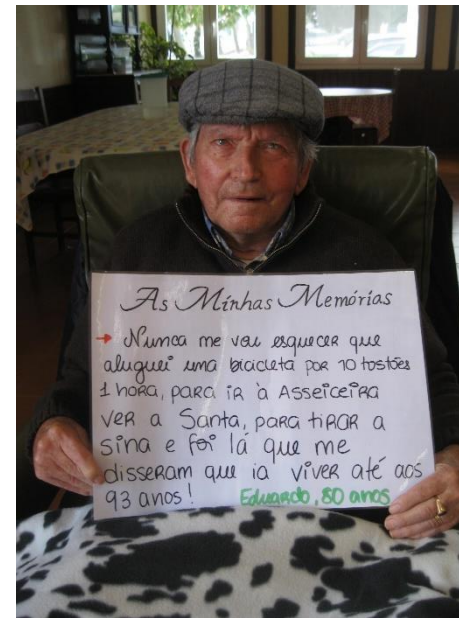 As Minhas Memórias
→ Nunca me vou esquecer que
aluguei uma bicicleta por 10 tostões
1 hora, para ir à Asseiceira
ver a Santa, para tirar a
sina e foi lá que me
disseram que ia viver até aos
93 anos! Eduardo, 80 anos